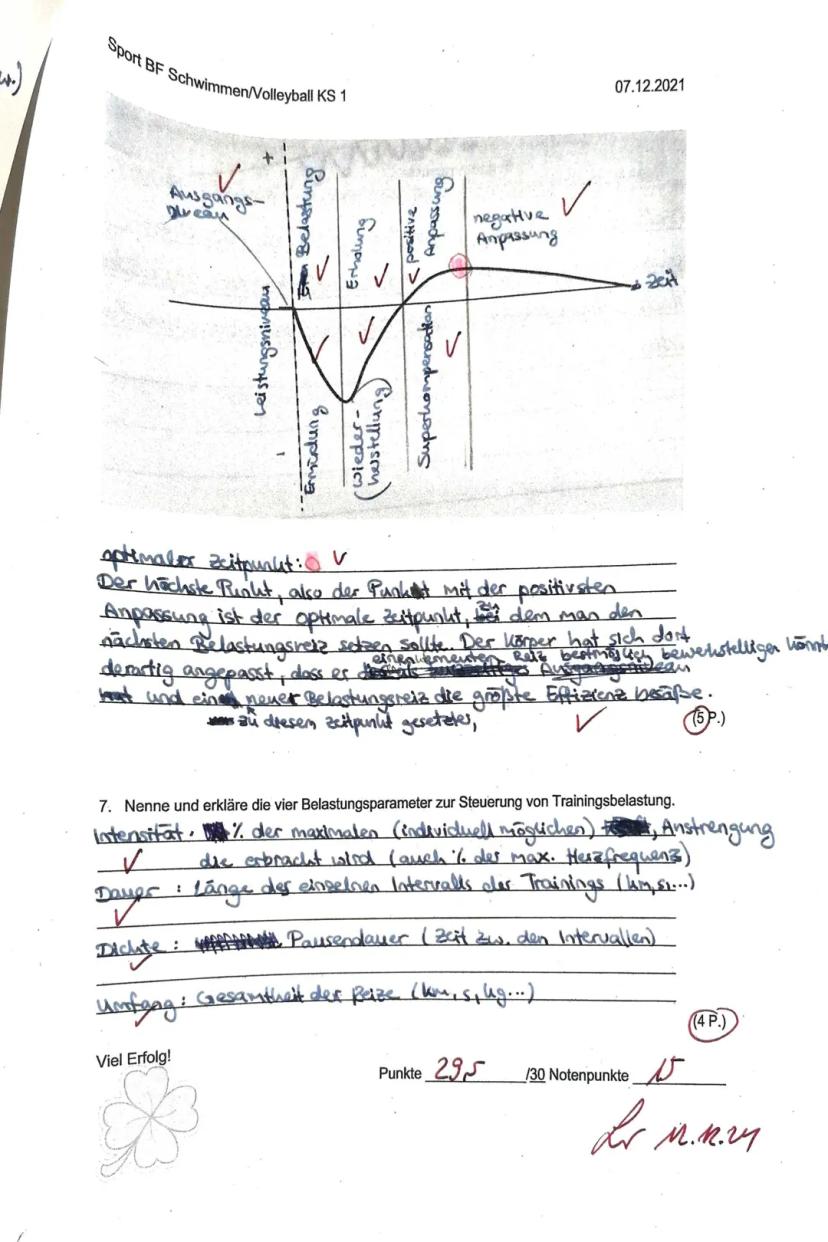 Sport BF Schwimmen/Volleyball KS 1
07.12.2021
+
Ausgangs-
niveau
Belastung
Erholung
positive
Anpassung
negative
Anpassung
Zeit
Leistungsniveau
-
Ermüdung
(Wieder-
herstellung)
Superkompensation
optimaler Zeitpunkt:
Der höchste Punkt, also der Punkt mit der positivsten
Anpassung ist der optimale Zeitpunkt, zu dem man den
nächsten Belastungsreiz setzen sollte. Der Körper hat sich dort
derartig angepasst, dass er einen erneuten Reiz bestmöglich bewerkstelligen könnte
und ein neuer Belastungsreiz die größte Effizienz besäße.
zu diesem Zeitpunkt gesetzter,
(5 P.)
7. Nenne und erkläre die vier Belastungsparameter zur Steuerung von Trainingsbelastung.
Intensität: % der maximalen (individuell möglichen), Anstrengung
die erbracht wird (auch % der max. Herzfrequenz)
Dauer: Länge des einzelnen Intervalls des Trainings (km, s, ...)
Dichte: Pausendauer (Zeit zw. den Intervallen)
Umfang: Gesamtheit der Reize (km, s, kg...)
(4 P.)
Viel Erfolg!
Punkte 29,5 /30 Notenpunkte 15